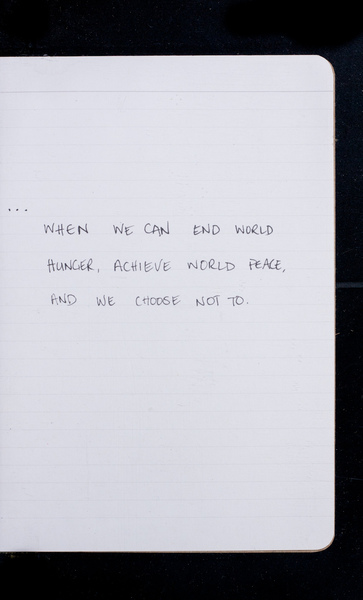 ...
WHEN WE CAN END WORLD
HUNGER, ACHIEVE WORLD PEACE,
AND WE CHOOSE NOT TO.